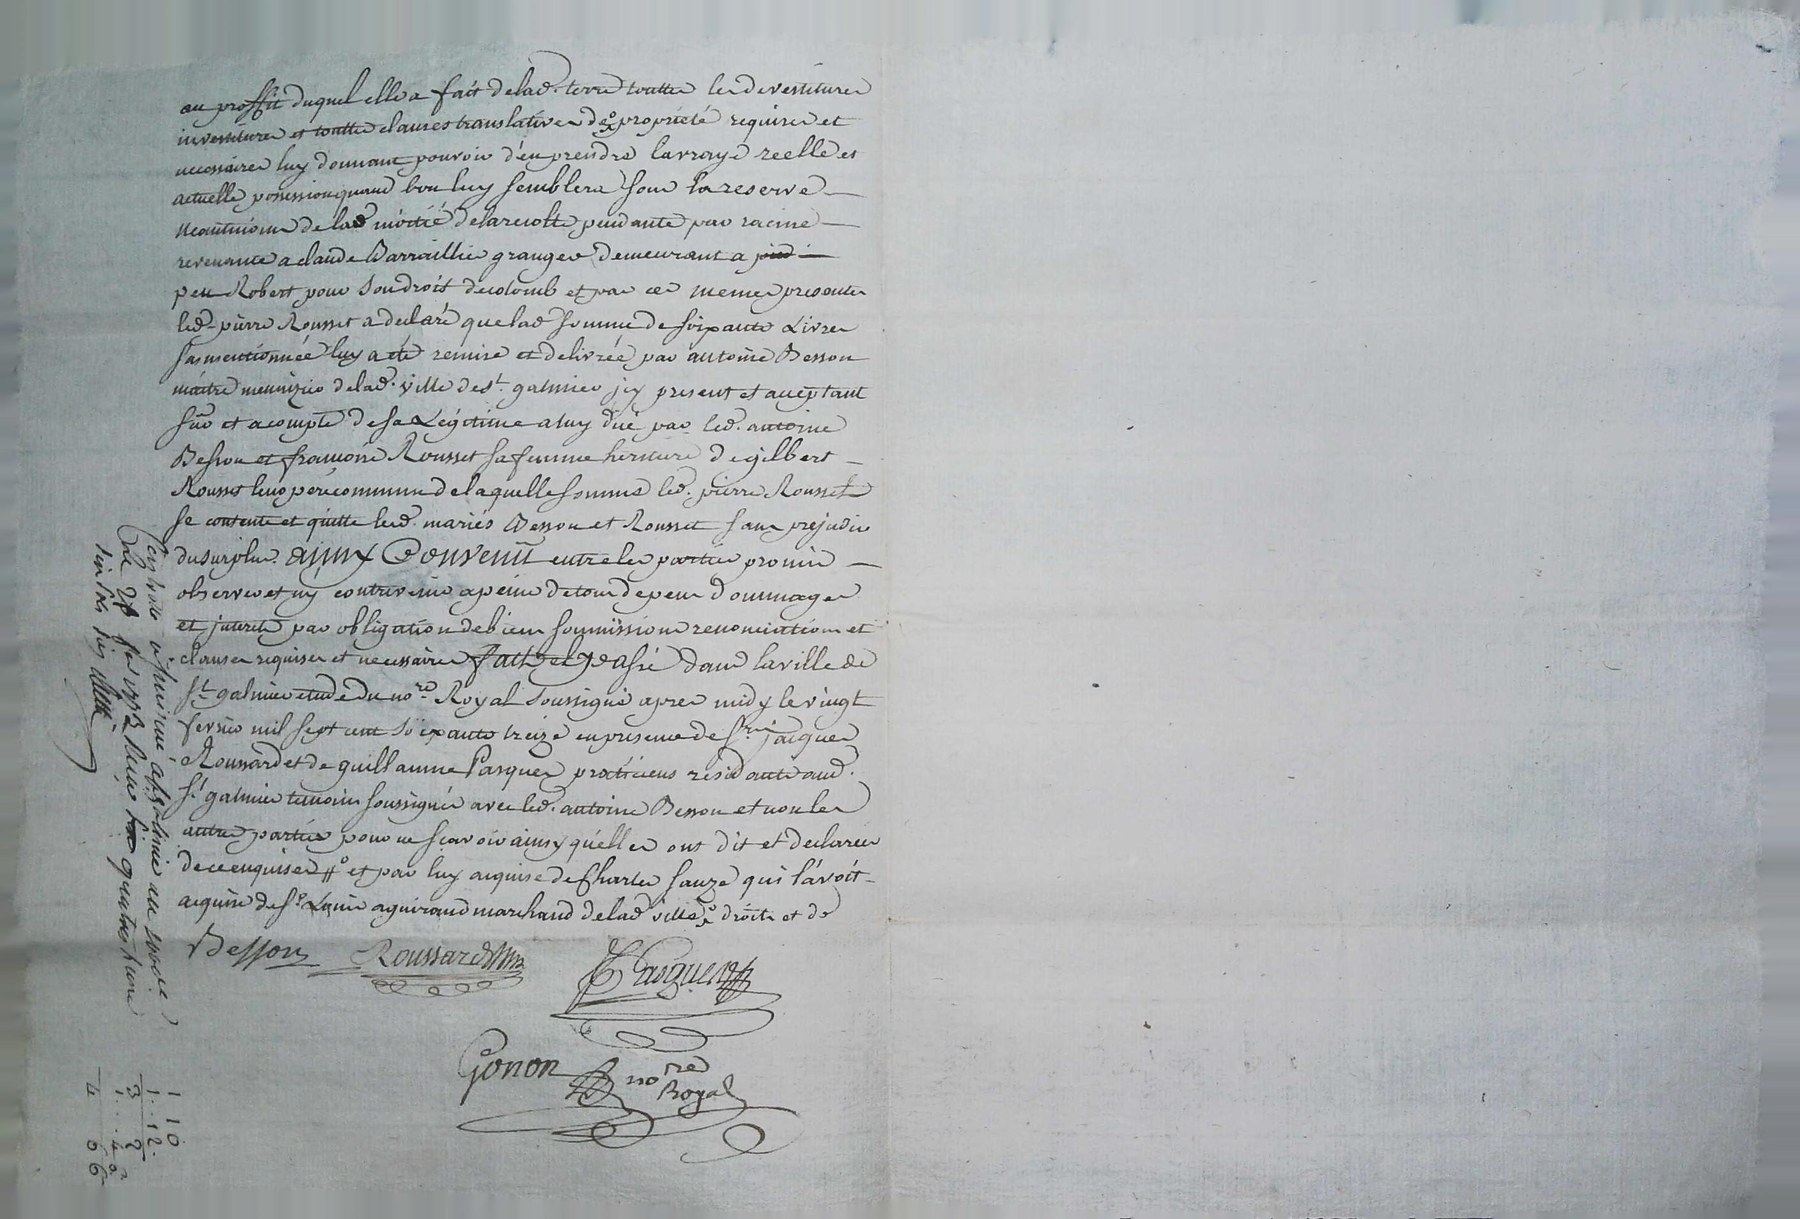 au proffit duquel elle a fait de lad. terre touttes les devestitures
investitures et touttes clauses translatives de propriété requises et
necessaires luy donnant pouvoir d'en prendre la vraye reelle et
actuelle possession quand bon luy semblera sous la reserve
neantmoins de lad moitié de la recolte pendante par racine
revenante a claude Barraillier granger demeurant a
peu Robert pour son droit de colomb et par ces memes presentes
led. pierre Rousset a declaré que lad somme de soixante Livres
sus mentionnée luy a eté remise et delivrée par antoine Besson
maitre menuizier de lad. ville de st. galmier jcy present et acceptant
sur et a compte de sa Légitime a luy dûe par led. antoine
Besson et francoise Rousset sa femme heritiere de gilbert
Rousset leur père commun de laquelle somme led. pierre Rousset
se contente et quitte lesd. mariés Besson et Rousset sans prejudice
du surplus. ainsy Convenû entre les parties promis
observer et ny contrevenir a peine de tous depens Dommages
et jnterets par obligation de biens soumissions renonciations et
clauses requises et necessaires fait et passé dans la ville de
St. galmier etude du nore. Royal soussigné apres midy le vingt
fevrier mil sept cent soixante treize en presence de sr. jacques
Roussard et de guillaume Pasquer praticiens residants aud.
St. galmier temoins soussignés avec led. antoine Besson et non les
autres parties pour ne scavoir ainsy qu'elles ont dit et declarées
de ce enquises # et par luy acquise de Charles sauze qui l'avoit
acquise de sr. Louis aguiraud marchand de lad ville droits et de
Besson Roussard Pasquer
Gonon nore
Royal
Controllé
le 28 fer 1773
quatre
1 10
1 .. 12
3 2
1 .. 4
4 6 6